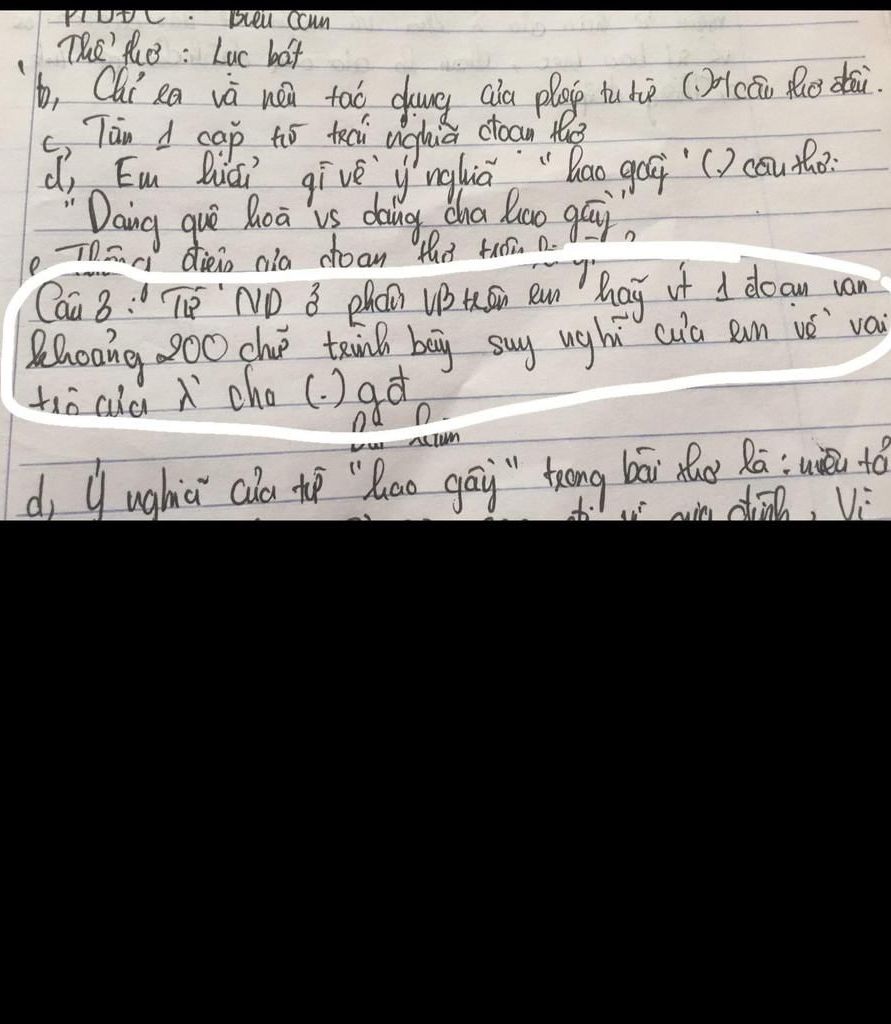 PTBĐC : Biểu cảm
Thể thơ : Lục bát
b, Chỉ ra và nêu tác dụng của phép tu từ (.) 4 câu thơ đầu.
c, Tìm 1 cặp từ trái nghĩa đoạn thơ
d, Em hiểu gì về ý nghĩa "hao gầy" (.) câu thơ:
"Dáng quê hoà vs dáng cha hao gầy"
e, Thông điệp của đoạn thơ trên là gì ?
Câu 3 : Từ ND ở phần VB trên em hãy vt 1 đoạn văn
khoảng 200 chữ trình bày suy nghĩ của em về vai
trò của cha (.) gđ
Bài làm
d, Ý nghĩa của từ "hao gầy" trong bài thơ là : miêu tả
vì gia đình, Vì